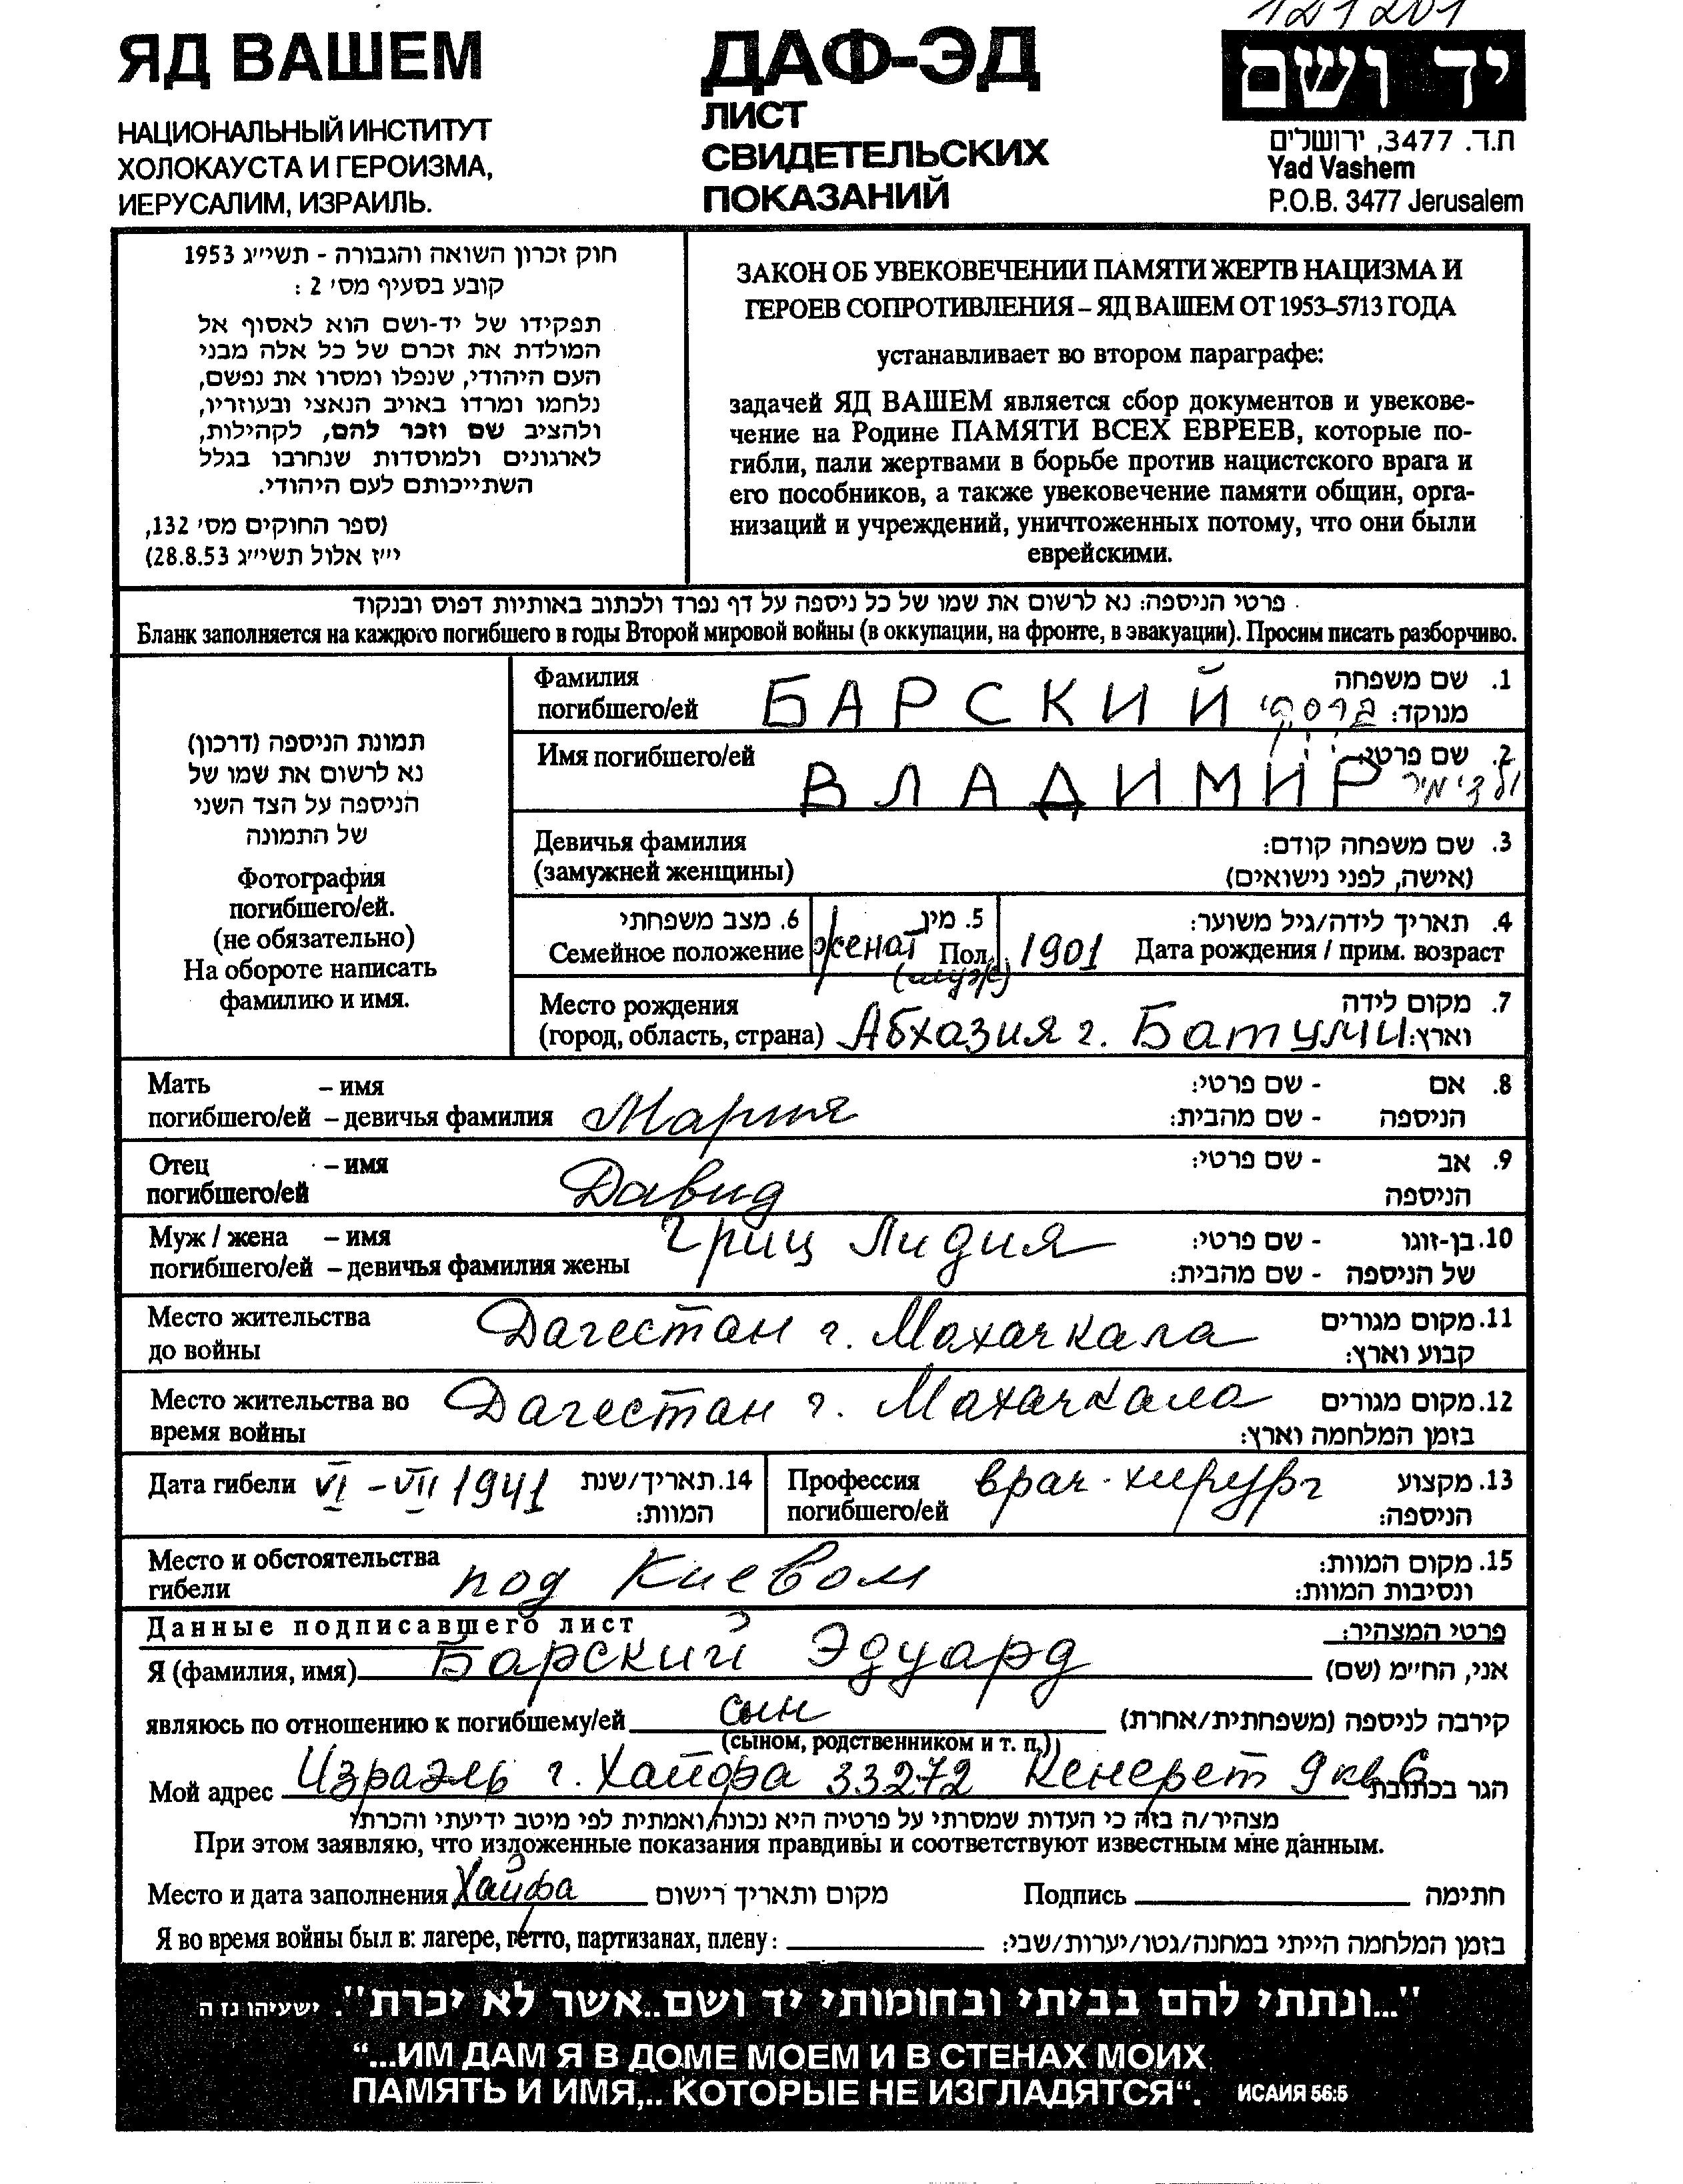 121201
ЯД ВАШЕМ
НАЦИОНАЛЬНЫЙ ИНСТИТУТ
ХОЛОКАУСТА И ГЕРОИЗМА,
ИЕРУСАЛИМ, ИЗРАИЛЬ.
ДАФ-ЭД
ЛИСТ
СВИДЕТЕЛЬСКИХ
ПОКАЗАНИЙ
יד ושם
ת.ד. 3477, ירושלים
Yad Vashem
P.O.B. 3477 Jerusalem
חוק זכרון השואה והגבורה - תשי״ג 1953
קובע בסעיף מס׳ 2 :
תפקידו של יד-ושם הוא לאסוף אל
המולדת את זכרם של כל אלה מבני
העם היהודי, שנפלו ומסרו את נפשם,
נלחמו ומרדו באויב הנאצי ובעוזריו,
ולהציב שם וזכר להם, לקהילות,
לארגונים ולמוסדות שנחרבו בגלל
השתייכותם לעם היהודי.
(ספר החוקים מס׳ 132,
י״ז אלול תשי״ג 28.8.53)
ЗАКОН ОБ УВЕКОВЕЧЕНИИ ПАМЯТИ ЖЕРТВ НАЦИЗМА И
ГЕРОЕВ СОПРОТИВЛЕНИЯ – ЯД ВАШЕМ ОТ 1953–5713 ГОДА
устанавливает во втором параграфе:
задачей ЯД ВАШЕМ является сбор документов и увекове-
чение на Родине ПАМЯТИ ВСЕХ ЕВРЕЕВ, которые по-
гибли, пали жертвами в борьбе против нацистского врага и
его пособников, а также увековечение памяти общин, орга-
низаций и учреждений, уничтоженных потому, что они были
еврейскими.
פרטי הניספה: נא לרשום את שמו של כל ניספה על דף נפרד ולכתוב באותיות דפוס ובנקוד
Бланк заполняется на каждого погибшего в годы Второй мировой войны (в оккупации, на фронте, в эвакуации). Просим писать разборчиво.
תמונת הניספה (דרכון)
נא לרשום את שמו של
הניספה על הצד השני
של התמונה
Фотография
погибшего/ей.
(не обязательно)
На обороте написать
фамилию и имя.
Фамилия 1. שם משפחה
погибшего/ей БАРСКИЙ מנוקד: ברסקי
Имя погибшего/ей 2. שם פרטי
ВЛАДИМИР ולדימיר
Девичья фамилия 3. שם משפחה קודם:
(замужней женщины) (אישה, לפני נישואים)
6. מצב משפחתי 5. מין 4. תאריך לידה/גיל משוער:
Семейное положение женат Пол (муж) 1901 Дата рождения / прим. возраст
Место рождения 7. מקום לידה
(город, область, страна) Абхазия г. Батуми וארץ:
Мать – имя 8. אם - שם פרטי:
погибшего/ей – девичья фамилия Мария הניספה - שם מהבית:
Отец – имя 9. אב - שם פרטי:
погибшего/ей Давид הניספה
Муж / жена – имя Гриц Лидия 10. בן-זוגו - שם פרטי:
погибшего/ей – девичья фамилия жены של הניספה - שם מהבית:
Место жительства 11. מקום מגורים
до войны Дагестан г. Махачкала קבוע וארץ:
Место жительства во Дагестан г. Махачкала 12. מקום מגורים
время войны בזמן המלחמה וארץ:
Дата гибели VI – VII 1941 14. תאריך/שנת המוות:
Профессия врач-хирург 13. מקצוע
погибшего/ей הניספה:
Место и обстоятельства 15. מקום המוות:
гибели под Киевом ונסיבות המוות:
Данные подписавшего лист פרטי המצהיר:
Я (фамилия, имя) Барский Эдуард אני, החי״מ (שם)
являюсь по отношению к погибшему/ей сын קירבה לניספה (משפחתית/אחרת)
(сыном, родственником и т. п.)
Мой адрес Израэль г. Хайфа 33272 Кенерет 9 кв. 6 הגר בכתובת
מצהיר/ה בזה כי העדות שמסרתי על פרטיה היא נכונה ואמתית לפי מיטב ידיעתי והכרתי
При этом заявляю, что изложенные показания правдивы и соответствуют известным мне данным.
Место и дата заполнения Хайфа מקום ותאריך רישום Подпись חתימה
Я во время войны был в: лагере, гетто, партизанах, плену: בזמן המלחמה הייתי במחנה/גטו/יערות/שבי:
"...ונתתי להם בביתי ובחומותי יד ושם..אשר לא יכרת". ישעיהו נז ה
“...ИМ ДАМ Я В ДОМЕ МОЕМ И В СТЕНАХ МОИХ
ПАМЯТЬ И ИМЯ,.. КОТОРЫЕ НЕ ИЗГЛАДЯТСЯ“. ИСАИЯ 56:5